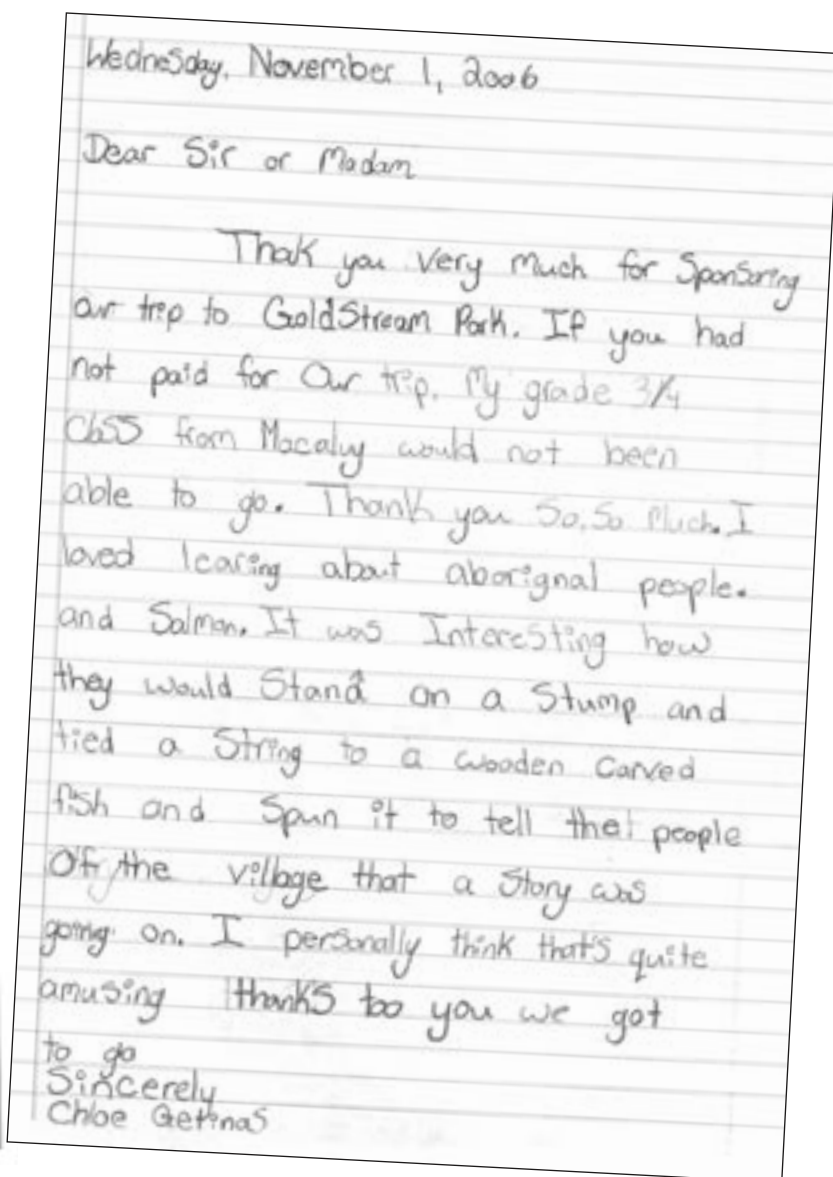 Wednesday, November 1, 2006
Dear Sir or Madam
Thak you very much for Sponsoring
our trip to GoldStream Park. If you had
not paid for Our trip. My grade 3/4
class from Macaluy would not been
able to go. Thank you So, So Much. I
loved learing about aborignal people.
and Salmon. It was Interesting how
they would Stand on a Stump and
tied a String to a wooden carved
fish and Spun it to tell the people
Of the village that a Story was
going on. I personally think that's quite
amusing thanks too you we got
to go
Sincerely
Chloe